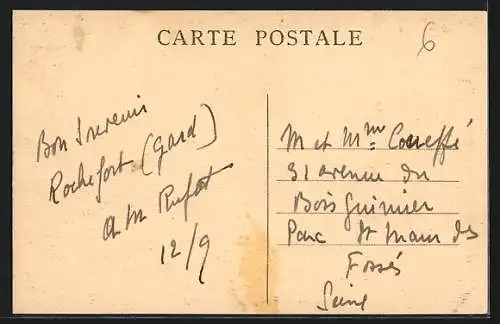 CARTE POSTALE
6
Bon Souvenir
Rochefort (Gard)
A M
12/9
M et Mme
31 avenue du
Bois Guimier
Parc St Maur des
Fossés
Seine